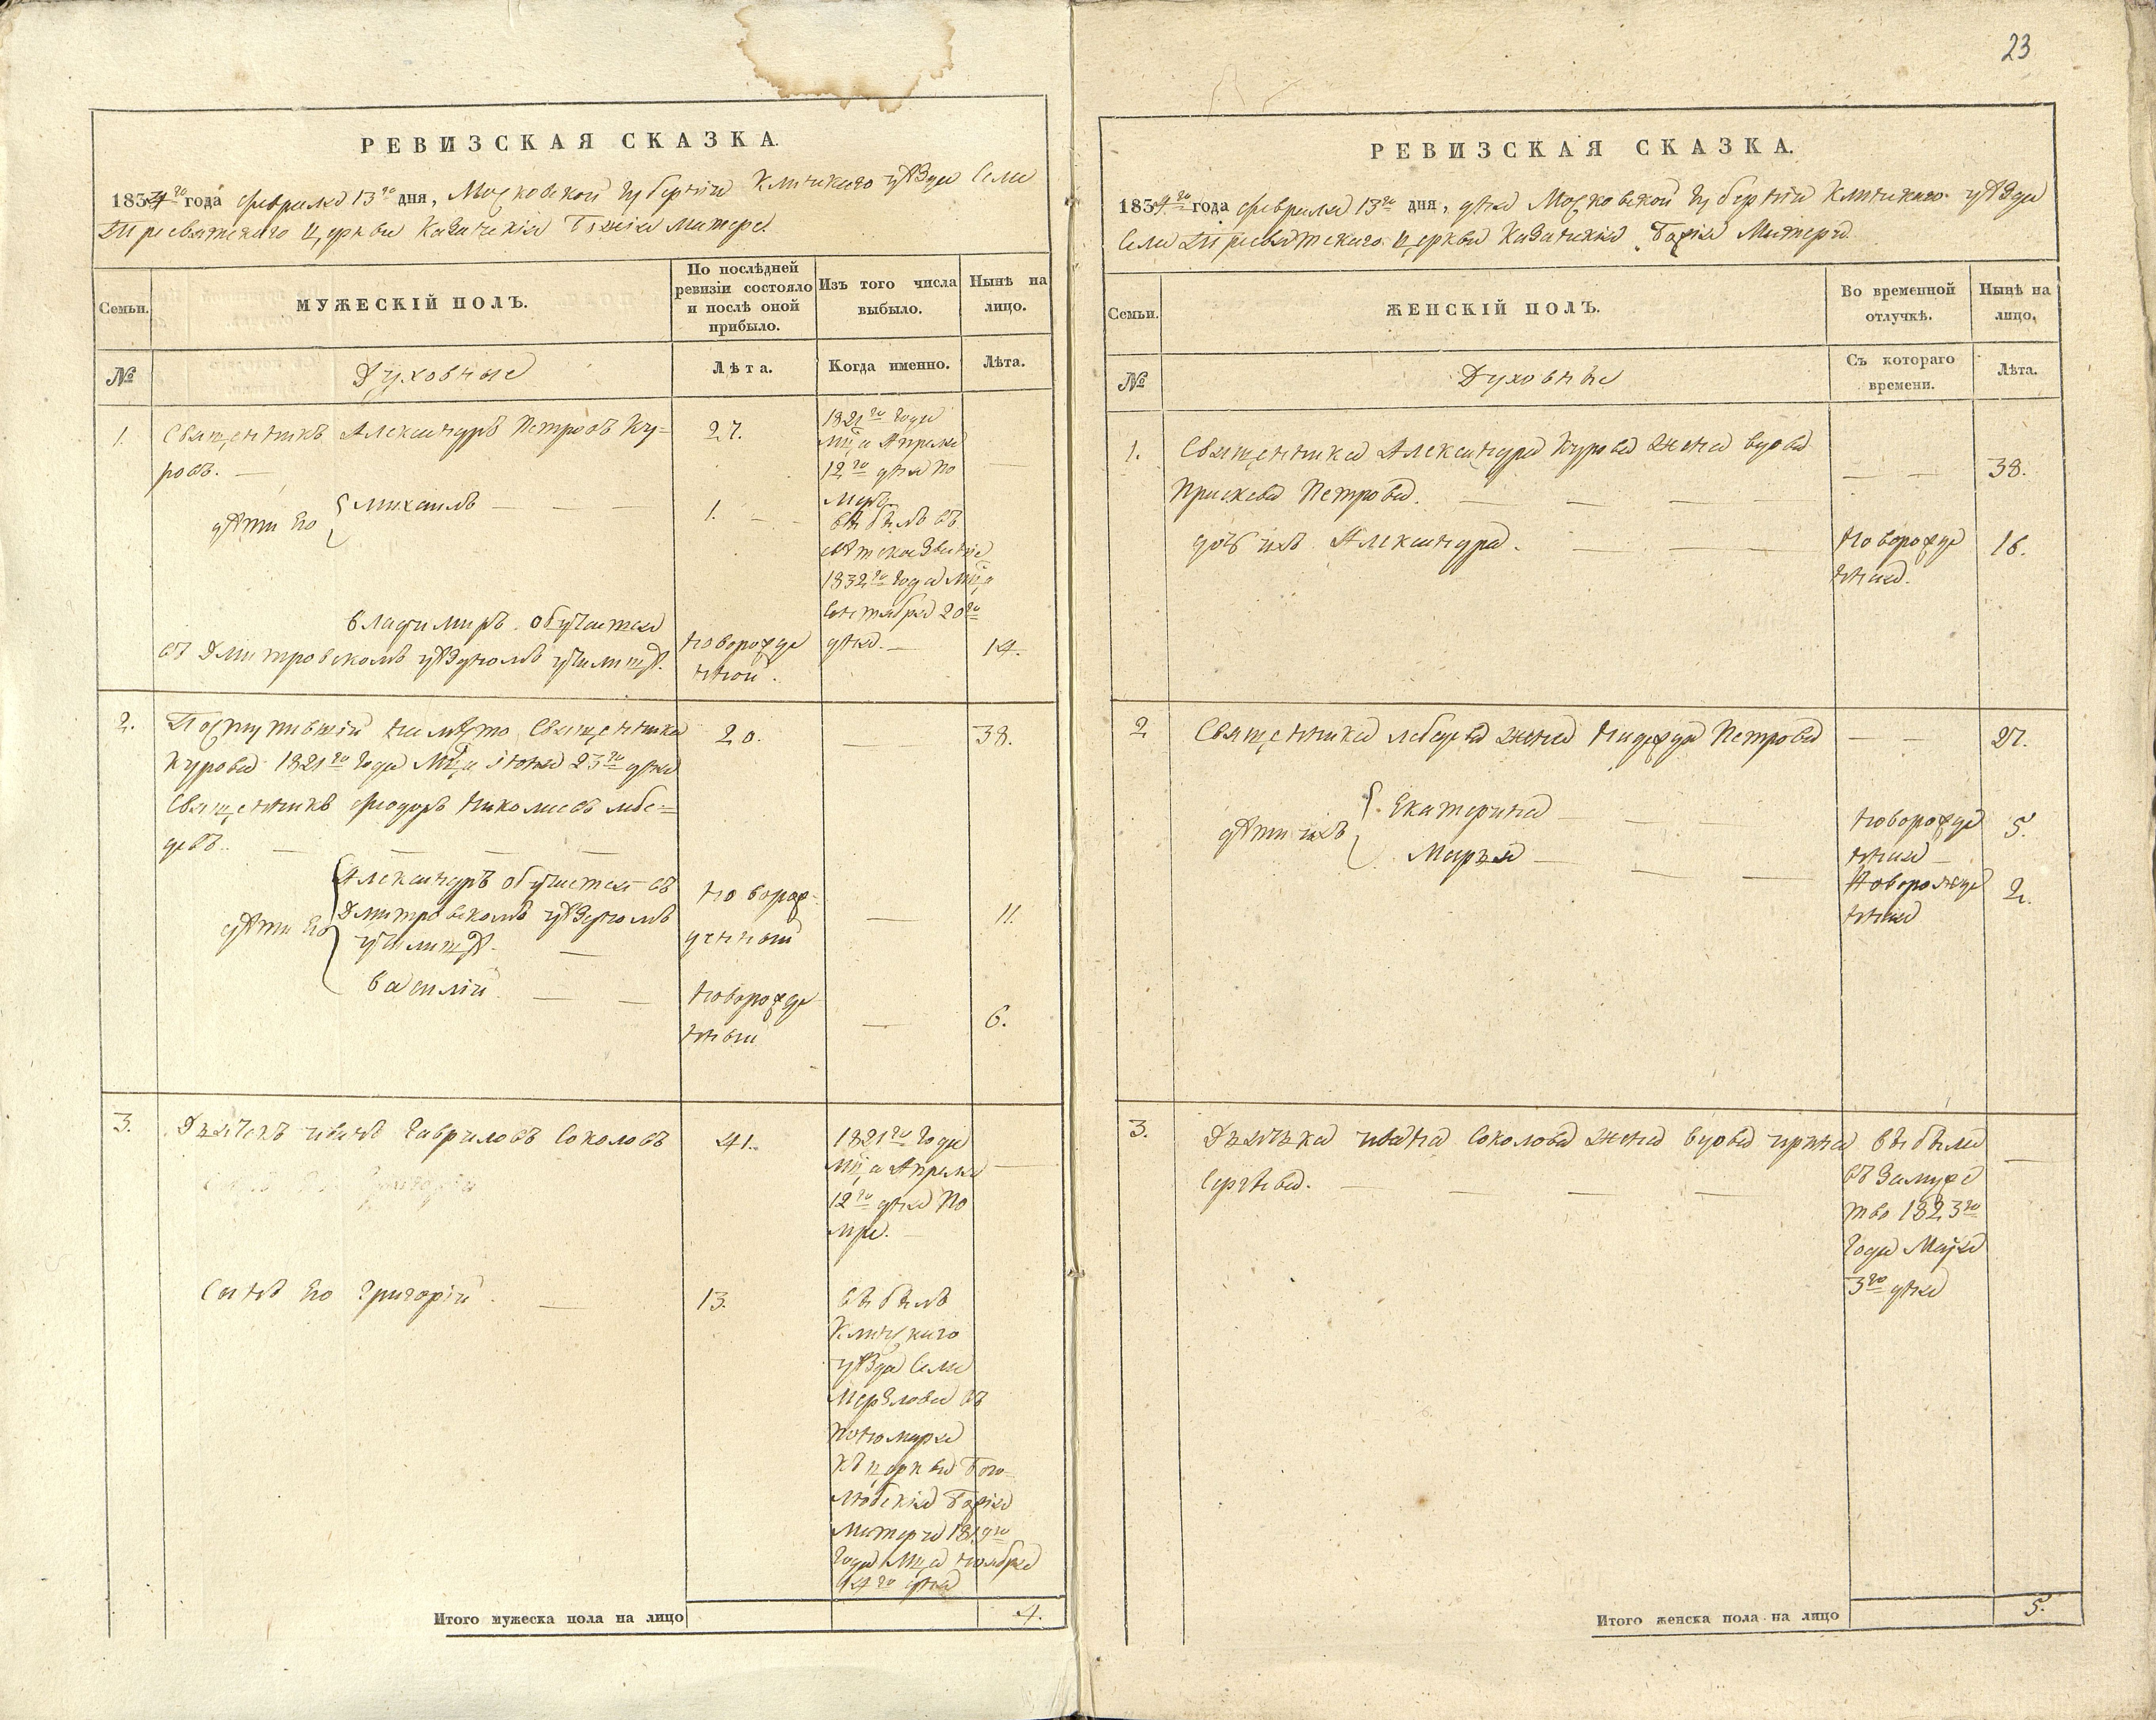 23
РЕВИЗСКАЯ СКАЗКА.
1834го года февраля 13го дня, Московской губернiи Клинскаго уѣзда Села
Тресвятскаго церкви Казанскiя Божiя Матере
Семьи.
МУЖЕСКІЙ ПОЛЪ.
По послѣдней ревизіи состояло и послѣ оной прибыло.
Изъ того числа выбыло.
Нынѣ на лицо.
№
Духовные
Лѣта.
Когда именно.
Лѣта.
1. Священникъ Александръ Петровъ Ку=
ровъ. —
27.
1821го года
мца Апреля
12го дня по
меръ
дѣти Его { Михаилъ — — —
1. — —
выбылъ въ
светско званіе
1832го года мца
Сентября 20го
дня. —
Владимиръ обучается
въ Дмитровскомъ уѣздномъ училищѣ.
новорожде
нной.
14.
2. Поступившій на мѣсто Священника
Курова 1821го года Мца іюня 23го дня
Священникъ Феодоръ Николаевъ лебе=
девъ. — — — —
20.
—
38.
дѣти Его { Александръ обучается въ
Дмитровскомъ уѣздномъ
училищѣ. —
новорож-
денный
—
11.
Василій — —
новорожде
нный
—
6.
3. Дьячекъ иванъ Гавриловъ Соколовъ
41.
1821го года
мца Апреля
12го дня По
мре. —
—
Сынъ Его Григорій —
13.
выбылъ
Клинскаго
уѣзда Села
Мерзлова въ
понамаря
къ церкви Бого-
любскія Божія
Матери 1819го
года Мца ноября
14го дня
Итого мужеска пола на лицо
4.
РЕВИЗСКАЯ СКАЗКА.
1834го года февраля 13го дня, дня Московской губернiи Клинскаго уѣзда
Села Тресвятскаго церкви Казанскія Божія Матери
Семьи.
ЖЕНСКІЙ ПОЛЪ.
Во временной отлучкѣ.
Нынѣ на лицо.
№
Духовные
Съ котораго времени.
Лѣта.
1. Священника Александра Курова жена вдова
Праскева Петрова. — — —
— —
38.
дочь ихъ Александра. — — —
новорожде
нная.
16.
2 Священника лебедева жена Надежда Петрова
— —
27.
дѣти ихъ { Екатерина — — —
новорожде
нная —
5.
Марья — — —
Новорожде
нная
2.
3. Дьячька ивана Соколова жена вдова ирина
Сергѣева. — — — —
выбыла
въ Замуже
тво 1823го
года Маія
3го дня
—
Итого женска пола на лицо
5.